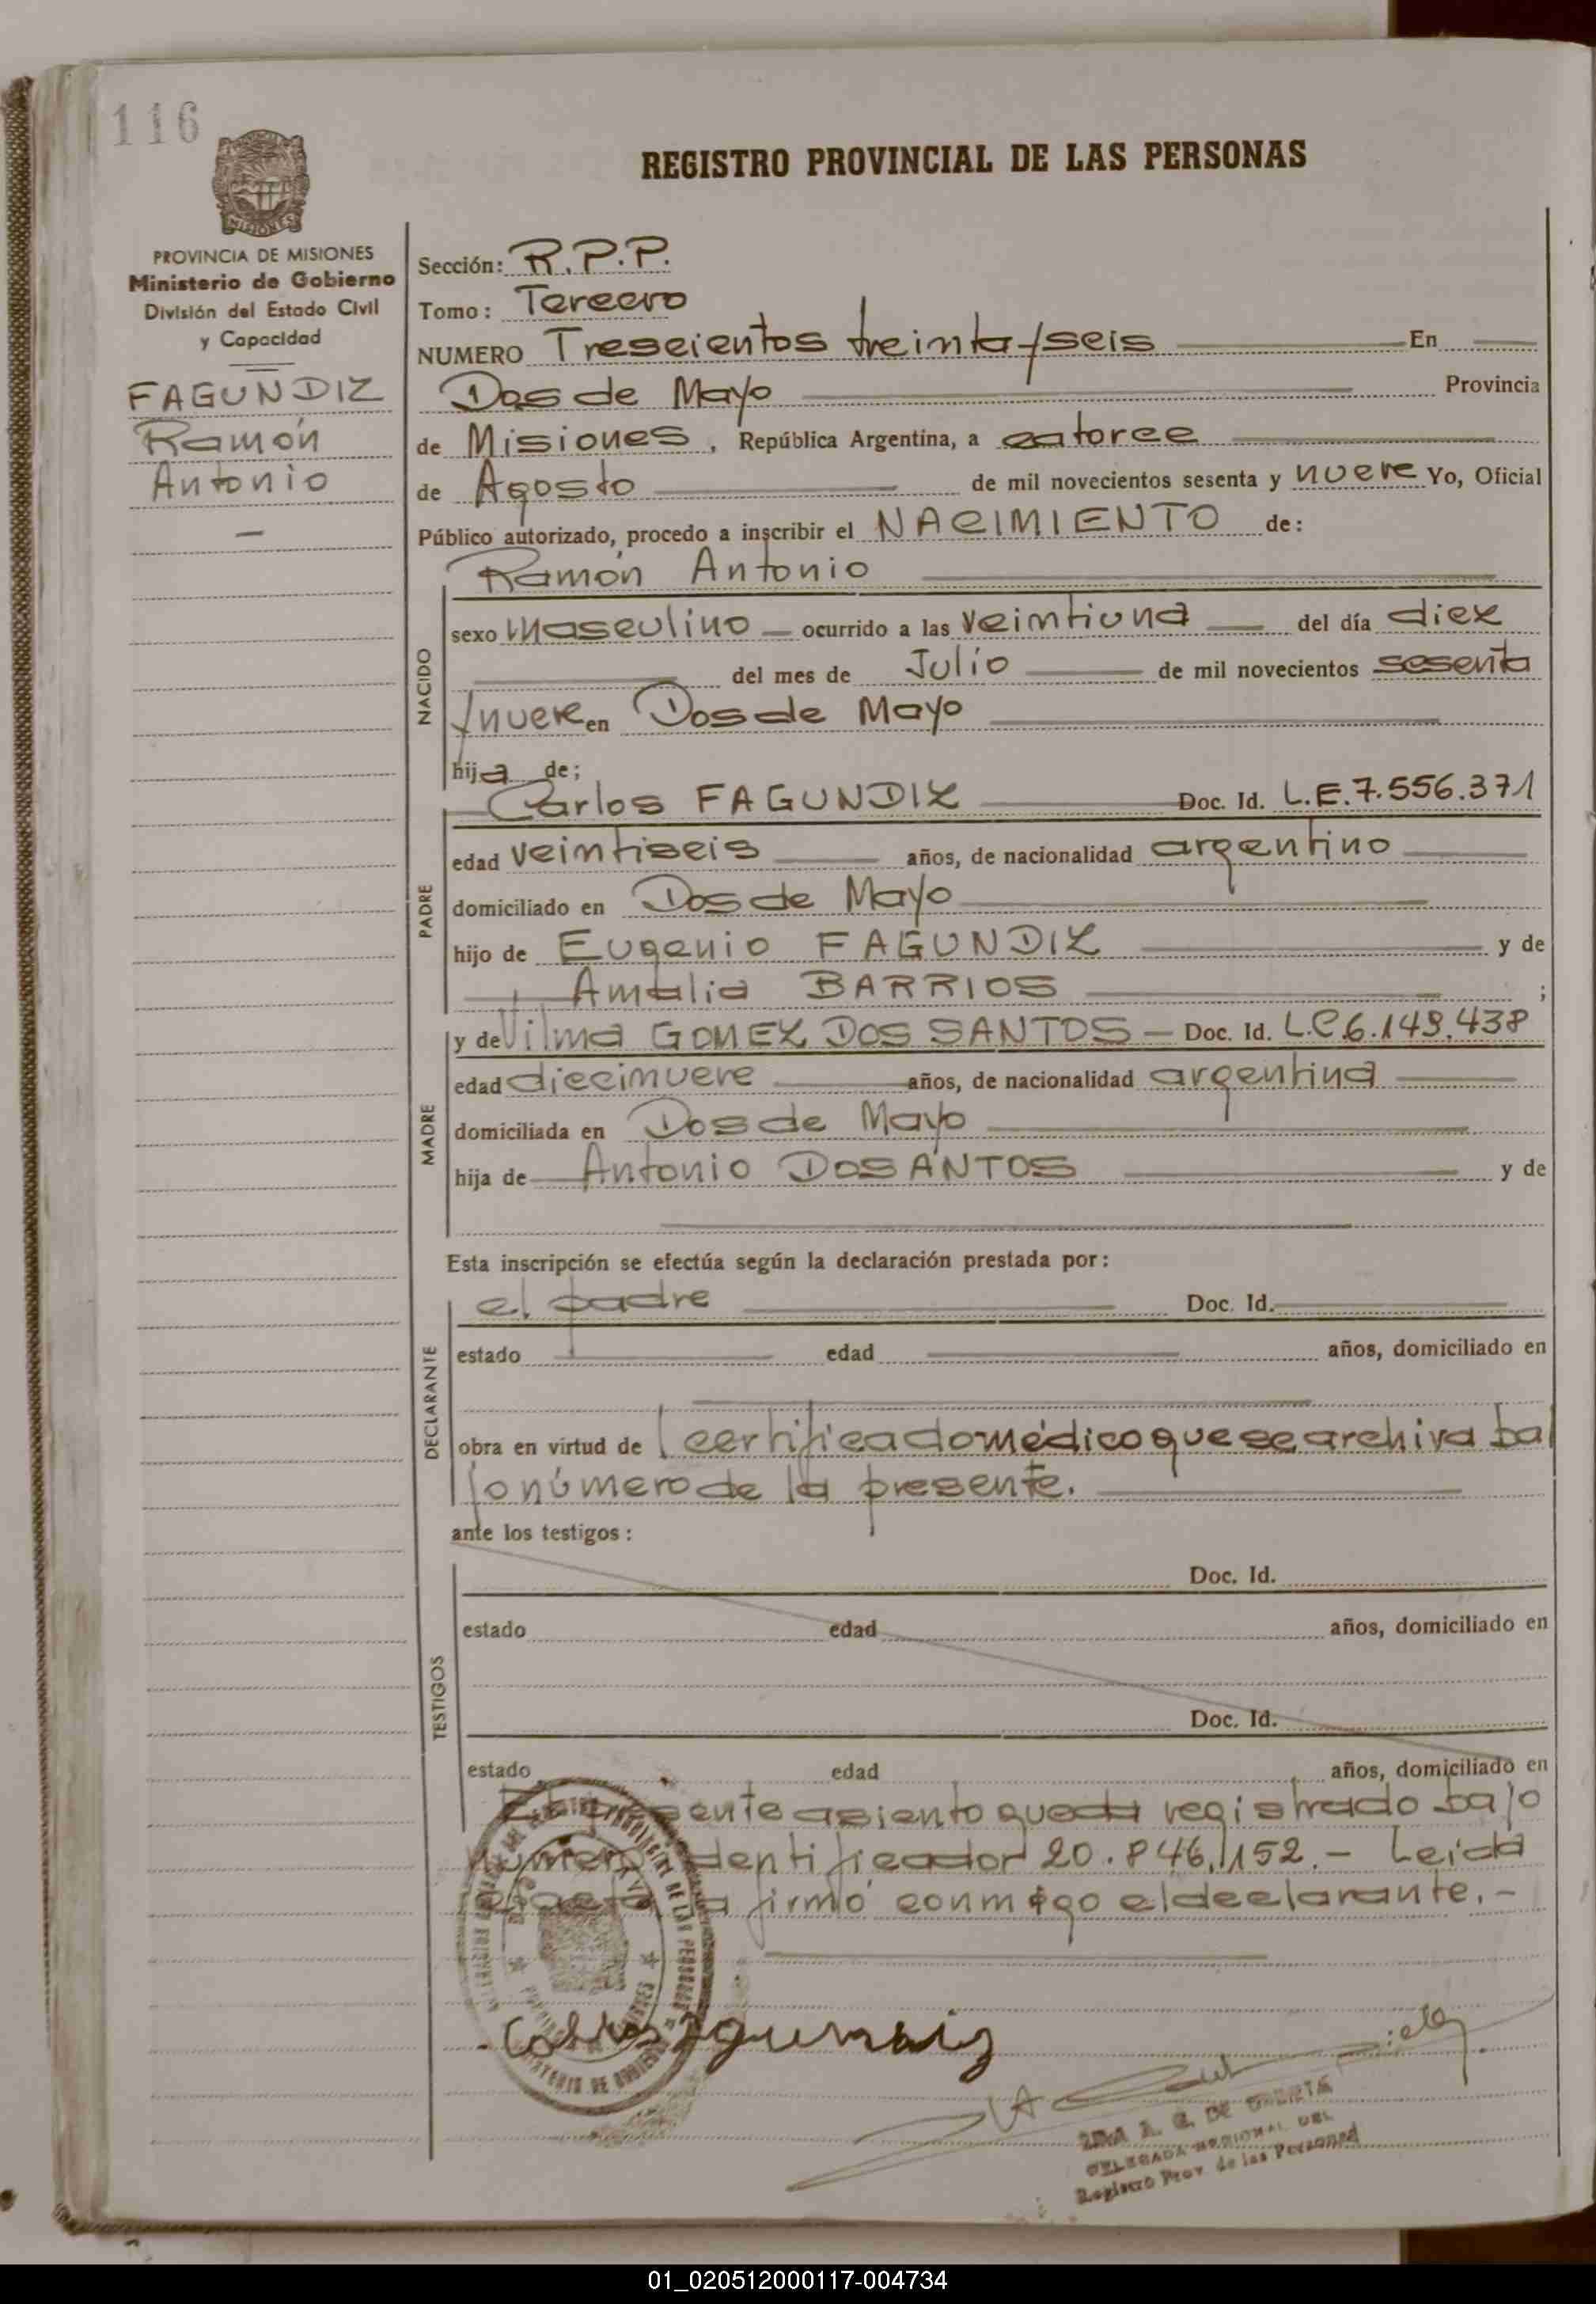 116
REGISTRO PROVINCIAL DE LAS PERSONAS
PROVINCIA DE MISIONES
Ministerio de Gobierno
División del Estado Civil
y Capacidad
FAGUNDIZ
Ramón
Antonio
Sección: R.P.P.
Tomo: Tercero
NUMERO Trescientos treinta y seis En
Dos de Mayo Provincia
de Misiones, República Argentina, a catorce
de Agosto de mil novecientos sesenta y nueve Yo, Oficial
Público autorizado, procedo a inscribir el NACIMIENTO de:
Ramón Antonio
NACIDO
sexo masculino ocurrido a las veintiuna del día diez
del mes de Julio de mil novecientos sesenta
y nueve en Dos de Mayo
hija de;
Carlos FAGUNDIZ Doc. Id. L.E.7.556.371
PADRE
edad veintiseis años, de nacionalidad argentino
domiciliado en Dos de Mayo
hijo de Eugenio FAGUNDIZ y de
Amalia BARRIOS ;
y de Vilma GOMEZ DOS SANTOS Doc. Id. L.C.6.149.438
MADRE
edad diecinueve años, de nacionalidad argentina
domiciliada en Dos de Mayo
hija de Antonio DOSANTOS y de
Esta inscripción se efectúa según la declaración prestada por:
DECLARANTE
el padre Doc. Id.
estado edad años, domiciliado en
obra en virtud de l certificado médico que se archiva ba
jo número de la presente.
ante los testigos:
TESTIGOS
Doc. Id.
estado edad años, domiciliado en
Doc. Id.
estado edad años, domiciliado en
asiento queda registrado bajo
identificador 20.846.152.- Leida
firmó conmigo el declarante.-
DELEGADA REGIONAL DEL
Registro Prov. de las Personas
01_020512000117-004734